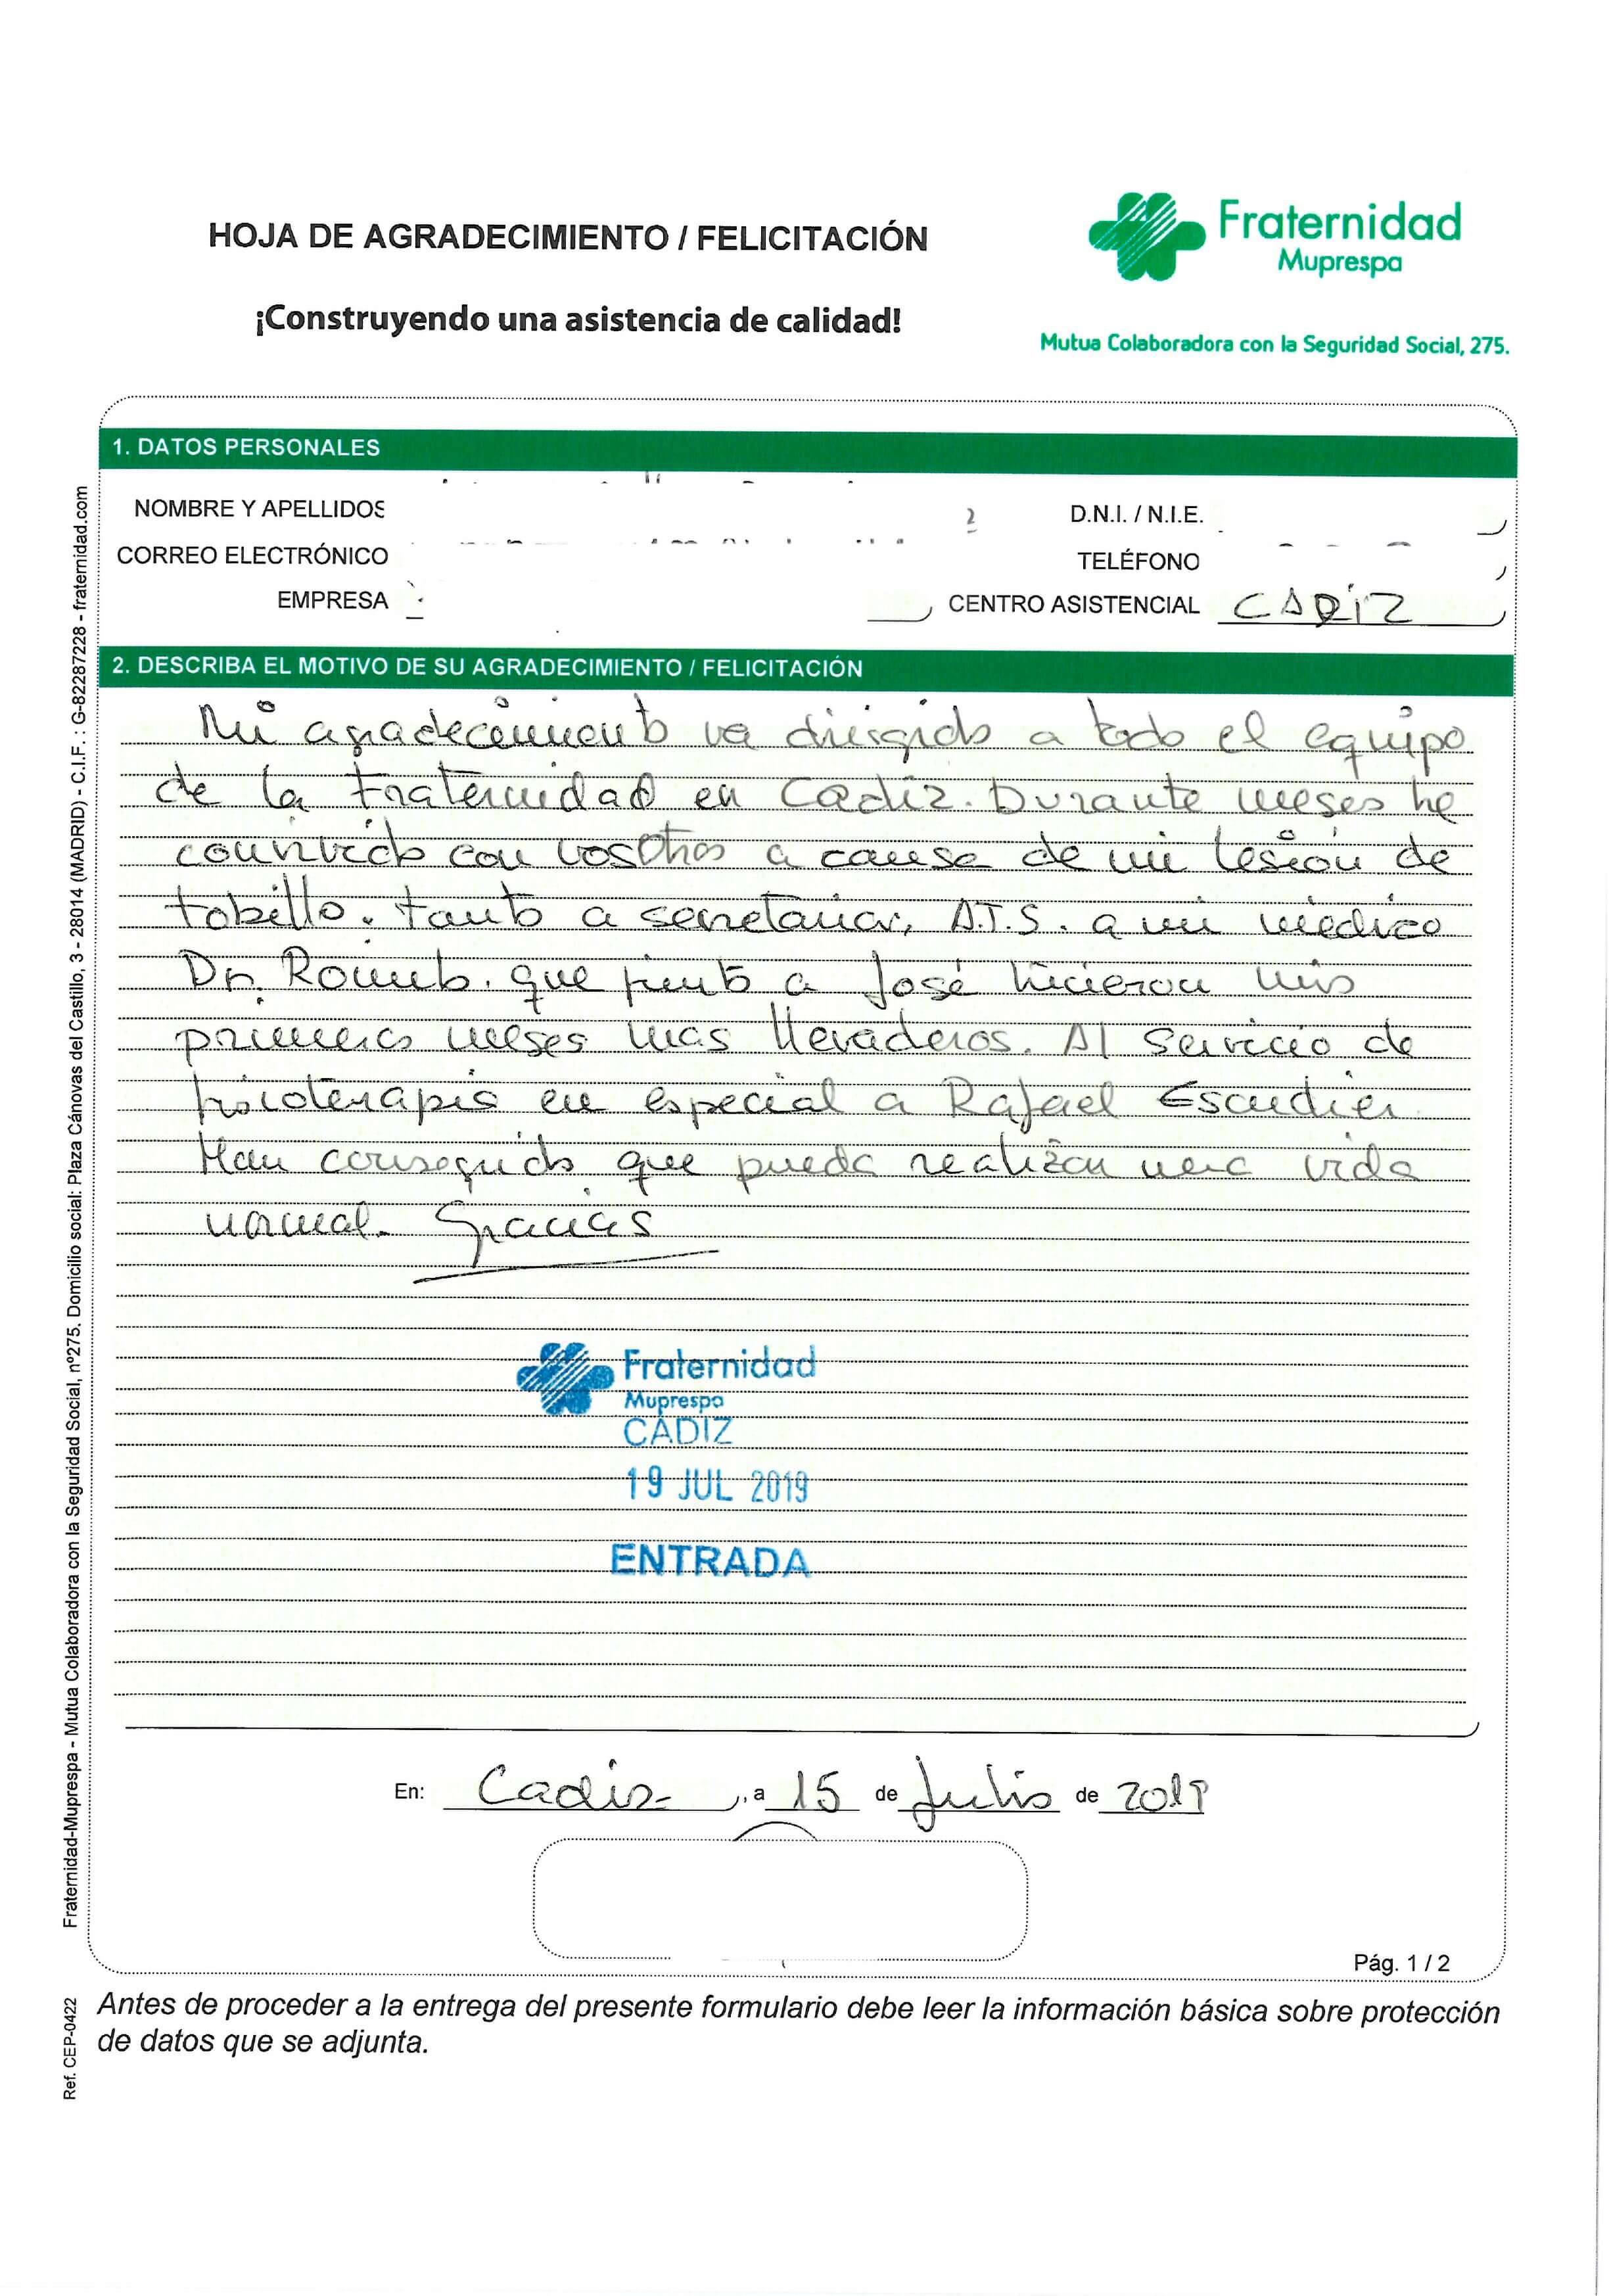 HOJA DE AGRADECIMIENTO / FELICITACIÓN
¡Construyendo una asistencia de calidad!
Fraternidad
Muprespa
Mutua Colaboradora con la Seguridad Social, 275.
1. DATOS PERSONALES
NOMBRE Y APELLIDOS
D.N.I. / N.I.E.
CORREO ELECTRÓNICO
TELÉFONO
EMPRESA
CENTRO ASISTENCIAL CADIZ
2. DESCRIBA EL MOTIVO DE SU AGRADECIMIENTO / FELICITACIÓN
Mi agradecimiento va dirigido a todo el equipo
de la Fraternidad en Cadiz. Durante meses he
convivido con vosotros a causa de mi lesión de
tobillo. tanto a secretaria, A.T.S. a mi médico
Dr. que junto a José hicieron mis
primeros meses mas llevaderos. Al servicio de
fisioterapia en especial a Rafael Escudier
Han conseguido que pueda realizar una vida
normal. Gracias
Fraternidad
Muprespa
CÁDIZ
19 JUL 2019
ENTRADA
En: Cadiz, a 15 de Julio de 2019
Pág. 1 / 2
Antes de proceder a la entrega del presente formulario debe leer la información básica sobre protección
de datos que se adjunta.
Ref. CEP-0422
Fraternidad-Muprespa - Mutua Colaboradora con la Seguridad Social, nº275. Domicilio social: Plaza Cánovas del Castillo, 3 - 28014 (MADRID) - C.I.F. : G-82287228 - fraternidad.com